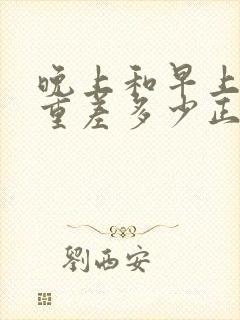 晚上和早上
重差多少正
劉西安